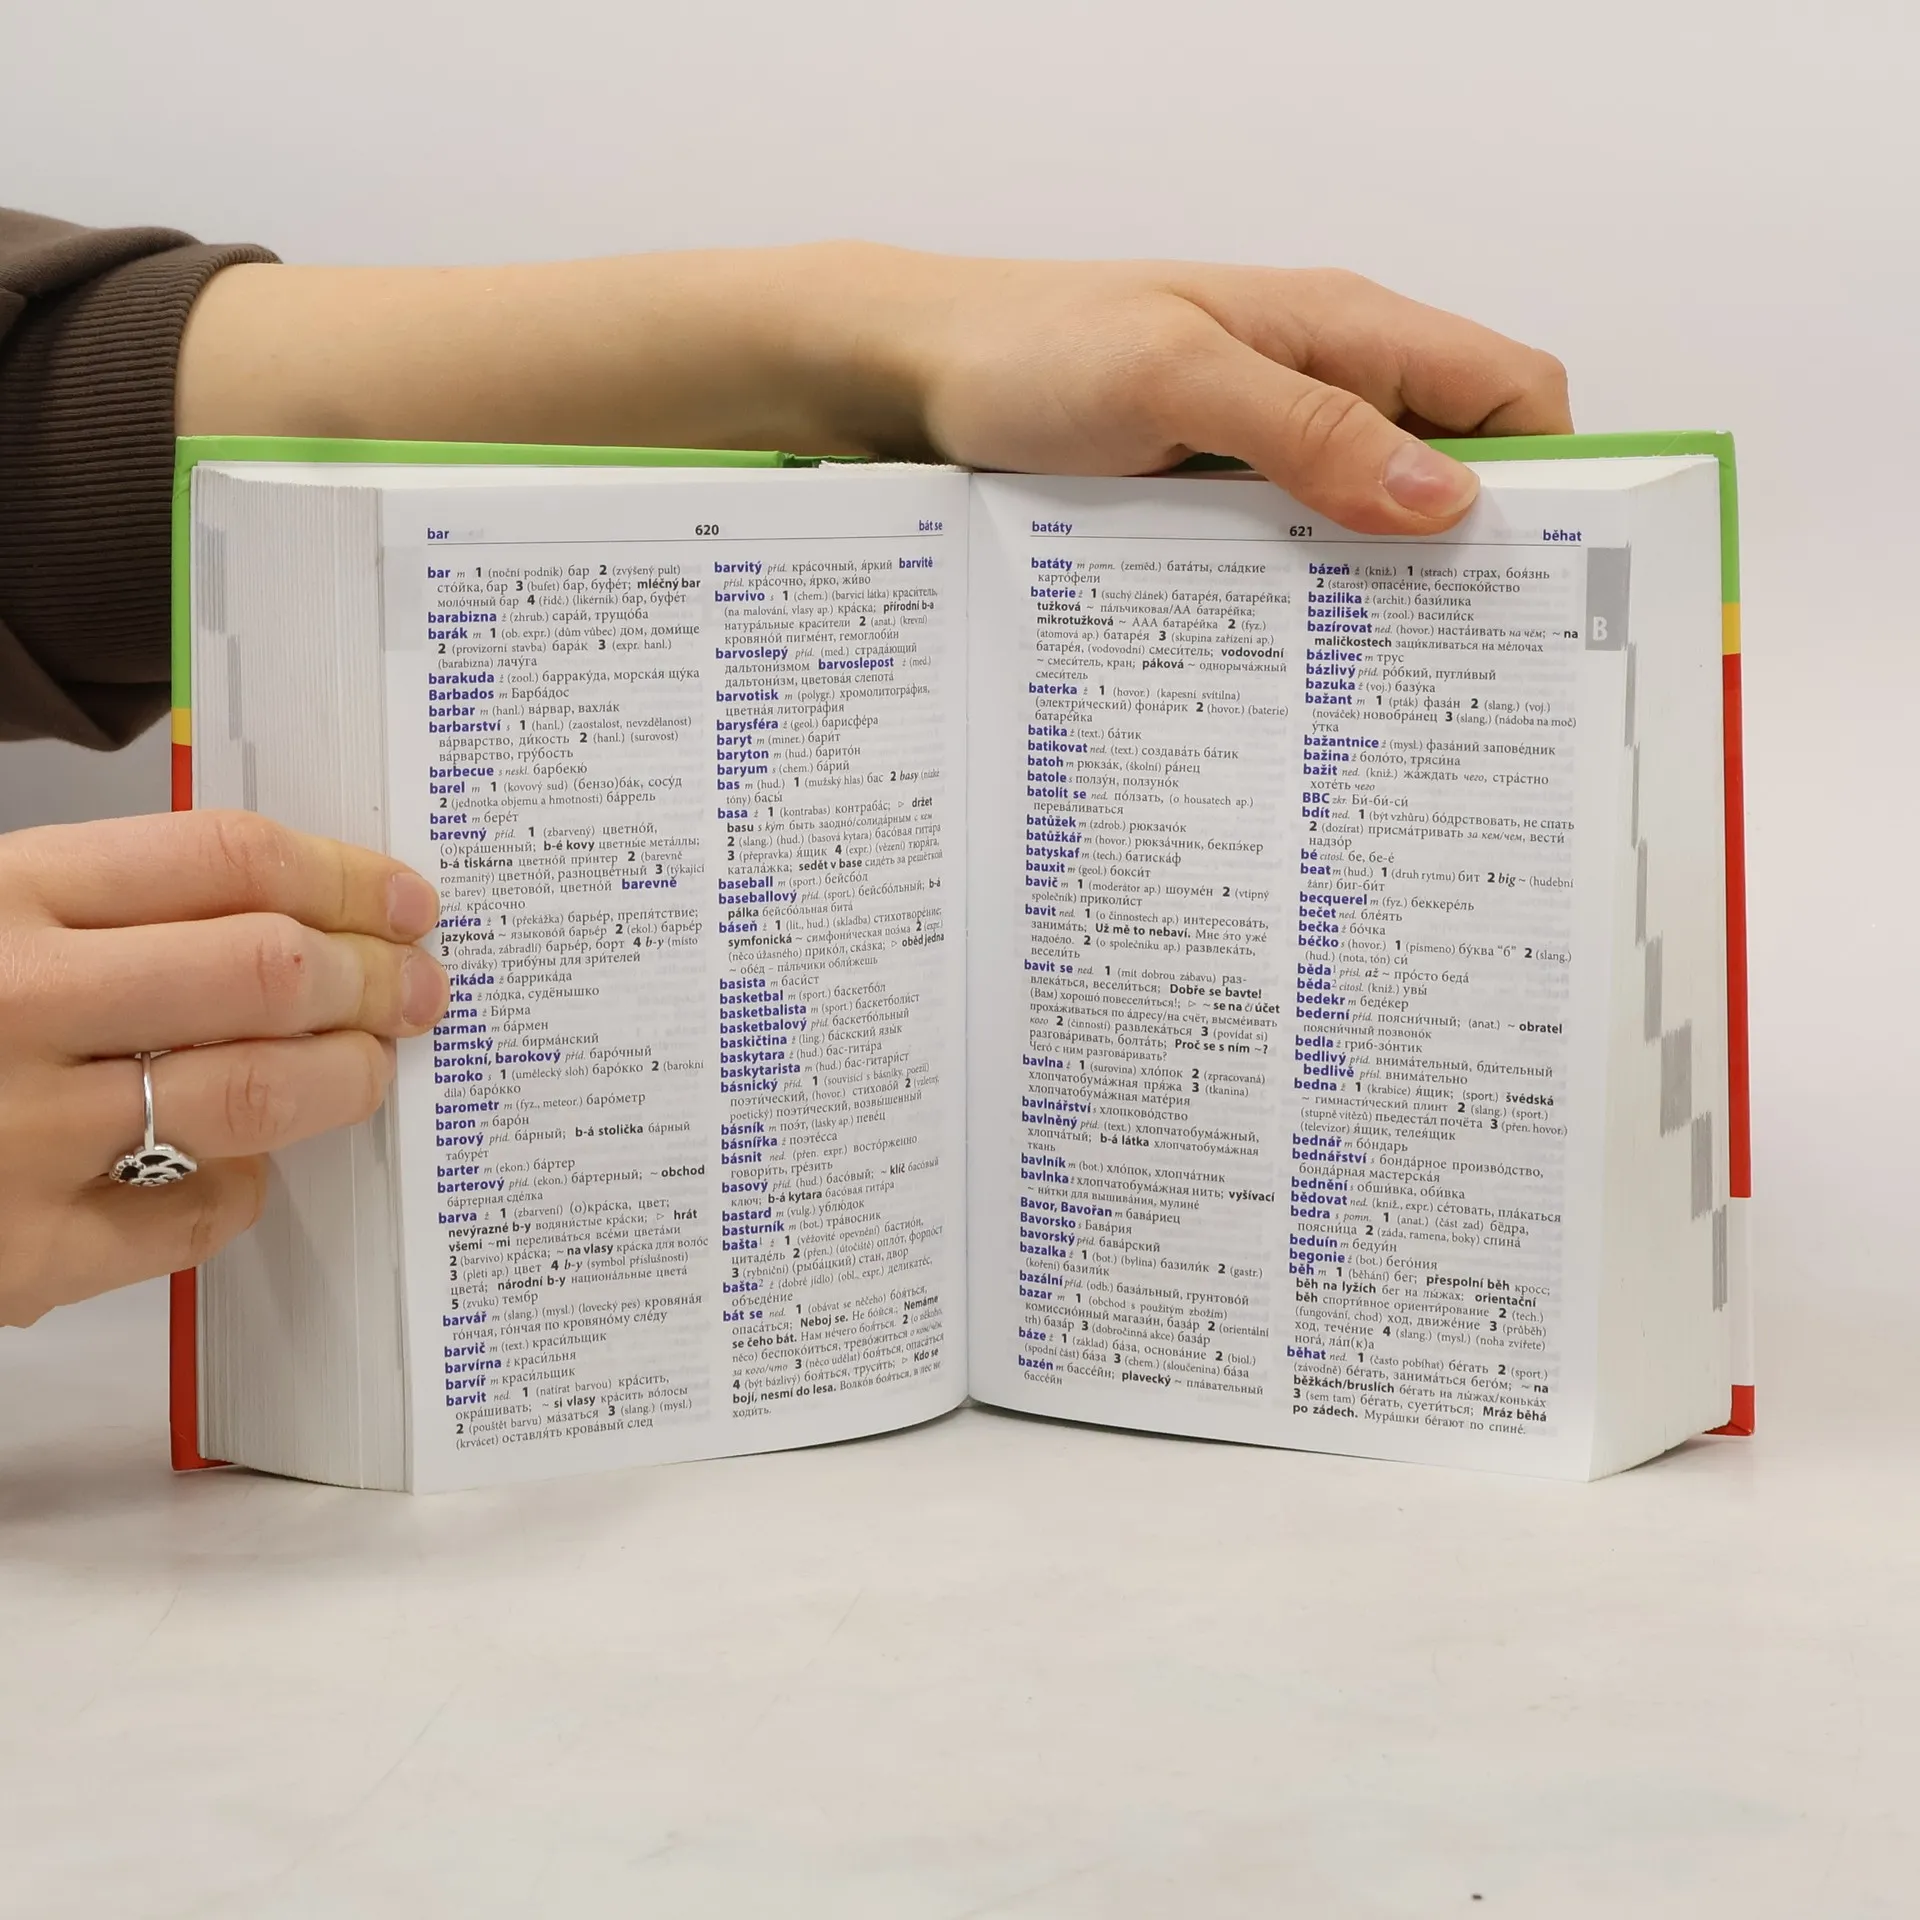 bar 620 bát se
bar m 1 (noční podnik) бар 2 (zvýšený pult)
сто́йка, бар 3 (bufet) бар, буфе́т; mléčný bar
моло́чный бар 4 (řidč.) (likérník) бар, буфе́т
barabizna ž (zhrub.) сара́й, трущо́ба
barák m 1 (ob. expr.) (dům vůbec) дом, доми́ще
2 (provizorní stavba) бара́к 3 (expr. hanl.)
(barabizna) лачу́га
barakuda ž (zool.) барраку́да, морска́я щу́ка
Barbados m Барба́дос
barbar m (hanl.) ва́рвар, вахла́к
barbarství s 1 (hanl.) (zaostalost, nevzdělanost)
ва́рварство, ди́кость 2 (hanl.) (surovost)
ва́рварство, гру́бость
barbecue s neskl. барбекю́
barel m 1 (kovový sud) (бензо)ба́к, сосу́д
2 (jednotka objemu a hmotnosti) ба́ррель
baret m бере́т
barevný příd. 1 (zbarvený) цветно́й,
(о)кра́шенный; b-é kovy цветны́е мета́ллы;
b-á tiskárna цветно́й при́нтер 2 (barevně
rozmanitý) цветно́й, разноцве́тный 3 (týkající
se barev) цветово́й, цветно́й barevně
přísl. кра́сочно
bariéra ž 1 (překážka) барье́р, препя́тствие;
jazyková ~ языково́й барье́р 2 (ekol.) барье́р
3 (ohrada, zábradlí) барье́р, борт 4 b-y (místo
pro diváky) трибу́ны для зри́телей
rikáda ž баррика́да
rka ž ло́дка, судёнышко
arma ž Би́рма
barman m ба́рмен
barmský příd. бирма́нский
barokní, barokový příd. баро́чный
baroko s 1 (umělecký sloh) баро́кко 2 (barokní
díla) баро́кко
barometr m (fyz., meteor.) баро́метр
baron m баро́н
barový příd. ба́рный; b-á stolička ба́рный
табуре́т
barter m (ekon.) ба́ртер
barterový příd. (ekon.) ба́ртерный; ~ obchod
ба́ртерная сде́лка
barva ž 1 (zbarvení) (о)кра́ска, цвет;
nevýrazné b-y водяни́стые кра́ски; ▷ hrát
všemi ~mi перелива́ться все́ми цвета́ми
2 (barvivo) кра́ска; ~ na vlasy кра́ска для воло́с
3 (pleti ap.) цвет 4 b-y (symbol příslušnosti)
цвета́; národní b-y национа́льные цвета́
5 (zvuku) тембр
barvář m (slang.) (mysl.) (lovecký pes) кровяна́я
го́нчая, го́нчая по кровяно́му сле́ду
barvič m (text.) краси́льщик
barvírna ž краси́льня
barvíř m краси́льщик
barvit ned. 1 (natírat barvou) кра́сить,
окра́шивать; ~ si vlasy кра́сить во́лосы
2 (pouštět barvu) ма́заться 3 (slang.) (mysl.)
(krvácet) оставля́ть крова́вый след
barvitý příd. кра́сочный, я́ркий barvitě
přísl. кра́сочно, я́рко, жи́во
barvivo s 1 (chem.) (barvicí látka) краси́тель,
(na malování, vlasy ap.) кра́ска; přírodní b-a
натура́льные краси́тели 2 (anat.) (krevní)
кровяно́й пигме́нт, гемоглоби́н
barvoslepý příd. (med.) страда́ющий
дальтони́змом barvoslepost ž (med.)
дальтони́зм, цветова́я слепота́
barvotisk m (polygr.) хромолитогра́фия,
цветна́я литогра́фия
barysféra ž (geol.) барисфе́ра
baryt m (miner.) бари́т
baryton m (hud.) барито́н
baryum s (chem.) ба́рий
bas m (hud.) 1 (mužský hlas) бас 2 basy (nízké
tóny) басы́
basa ž 1 (kontrabas) контраба́с; ▷ držet
basu s kým быть заодно́/солида́рным с кем
2 (slang.) (hud.) (basová kytara) басо́вая гита́ра
3 (přepravka) я́щик 4 (expr.) (vězení) тюря́га,
катала́жка; sedět v base сиде́ть за решёткой
baseball m (sport.) бейсбо́л
baseballový příd. (sport.) бейсбо́льный; b-á
pálka бейсбо́льная бита́
báseň ž 1 (lit., hud.) (skladba) стихотворе́ние;
symfonická ~ симфони́ческая поэ́ма 2 (expr.)
(něco úžasného) прико́л, ска́зка; ▷ oběd jedna
~ обе́д - па́льчики обли́жешь
basista m баси́ст
basketbal m (sport.) баскетбо́л
basketbalista m (sport.) баскетболи́ст
basketbalový příd. баскетбо́льный
baskičtina ž (ling.) ба́скский язы́к
baskytara ž (hud.) бас-гита́ра
baskytarista m (hud.) бас-гитари́ст
básnický příd. 1 (souvisící s básníky, poezií)
поэти́ческий, (hovor.) стихово́й 2 (vznletný,
poetický) поэти́ческий, возвы́шенный
básník m поэ́т, (lásky ap.) певе́ц
básnířka ž поэте́сса
básnit ned. (přen. expr.) восто́рженно
говори́ть, гре́зить
basový příd. (hud.) басо́вый; ~ klíč басо́вый
ключ; b-á kytara басо́вая гита́ра
bastard m (vulg.) ублю́док
basturník m (bot.) тра́восник
bašta¹ ž 1 (věžovité opevnění) бастио́н,
цитаде́ль 2 (přen.) (útočiště) опло́т, форпо́ст
3 (rybniční) (рыба́цкий) стан, двор
bašta² ž (dobré jídlo) (obl., expr.) деликате́с,
объеде́ние
bát se ned. 1 (obávat se něčeho) боя́ться,
опаса́ться; Neboj se. Не бо́йся.; Nemáme
se čeho bát. Нам не́чего боя́ться. 2 (o někoho,
něco) беспоко́иться, трево́житься о ком/чём,
за кого/что 3 (něco udělat) боя́ться, опаса́ться
4 (být bázlivý) боя́ться, труси́ть; ▷ Kdo se
bojí, nesmí do lesa. Волко́в боя́ться, в лес не
ходи́ть.
batáty 621 běhat
batáty m pomn. (zeměd.) бата́ты, сла́дкие
карто́фели
baterie ž 1 (suchý článek) батаре́я, батаре́йка;
tužková ~ па́льчиковая/АА батаре́йка;
mikrotužková ~ ААА батаре́йка 2 (fyz.)
(atomová ap.) батаре́я 3 (skupina zařízení ap.)
батаре́я, (vodovodní) смеси́тель; vodovodní
~ смеси́тель, кран; páková ~ однорыча́жный
смеси́тель
baterka ž 1 (hovor.) (kapesní svítilna)
(электри́ческий) фона́рик 2 (hovor.) (baterie)
батаре́йка
batika ž (text.) ба́тик
batikovat ned. (text.) создава́ть ба́тик
batoh m рюкза́к, (školní) ра́нец
batole s ползу́н, ползуно́к
batolit se ned. по́лзать, (o housatech ap.)
перева́ливаться
batůžek m (zdrob.) рюкзачо́к
batůžkář m (hovor.) рюкза́чник, бекпэ́кер
batyskaf m (tech.) батиска́ф
bauxit m (geol.) бокси́т
bavič m 1 (moderátor ap.) шоуме́н 2 (vtipný
společník) приколи́ст
bavit ned. 1 (o činnostech ap.) интересова́ть,
занима́ть; Už mě to nebaví. Мне э́то уже́
надое́ло. 2 (o společníku ap.) развлека́ть,
весели́ть
bavit se ned. 1 (mít dobrou zábavu) раз-
влека́ться, весели́ться; Dobře se bavte!
(Вам) хорошо́ повесели́ться!; ▷ ~ se na čí účet
проха́живаться по а́дресу/на счёт, высме́ивать
кого 2 (činností) развлека́ться 3 (povídat si)
разгова́ривать, болта́ть; Proč se s ním ~?
Чего́ с ним разгова́ривать?
bavlna ž 1 (surovina) хло́пок 2 (zpracovaná)
хлопчатобума́жная пря́жа 3 (tkanina)
хлопчатобума́жная мате́рия
bavlnářství s хлопково́дство
bavlněný příd. (text.) хлопчатобума́жный,
хлопча́тый; b-á látka хлопчатобума́жная
ткань
bavlník m (bot.) хло́пок, хлопча́тник
bavlnka ž хлопчатобума́жная нить; vyšívací
~ ни́тки для вышива́ния, мулине́
Bavor, Bavořan m бава́риец
Bavorsko s Бава́рия
bavorský příd. бава́рский
bazalka ž 1 (bot.) (bylina) базили́к 2 (gastr.)
(koření) базили́к
bazální příd. (odb.) база́льный, грунтово́й
bazar m 1 (obchod s použitým zbožím)
комиссио́нный магази́н, база́р 2 (orientální
trh) база́р 3 (dobročinná akce) база́р
báze ž 1 (základ) ба́за, основа́ние 2 (biol.)
(spodní část) ба́за 3 (chem.) (sloučenina) ба́за
bazén m бассе́йн; plavecký ~ пла́вательный
бассе́йн
bázeň ž (kniž.) 1 (strach) страх, боя́знь
2 (starost) опасе́ние, беспоко́йство
bazilika ž (archit.) бази́лика
bazilišek m (zool.) васили́ск
bazírovat ned. (hovor.) наста́ивать на чём; ~ na
maličkostech заци́кливаться на мелоча́х
bázlivec m трус
bázlivý příd. ро́бкий, пугли́вый
bazuka ž (voj.) базу́ка
bažant m 1 (pták) фаза́н 2 (slang.) (voj.)
(nováček) новобра́нец 3 (slang.) (nádoba na moč)
у́тка
bažantnice ž (mysl.) фаза́ний запове́дник
bažina ž боло́то, тряси́на
bažit ned. (kniž.) жа́ждать чего, стра́стно
хоте́ть чего
BBC zkr. Би-би-си́
bdít ned. 1 (být vzhůru) бо́дрствовать, не спать
2 (dozírat) присма́тривать за кем/чем, вести́
надзо́р
bé citosl. бе, бе-е́
beat m (hud.) 1 (druh rytmu) бит 2 big ~ (hudební
žánr) биг-би́т
becquerel m (fyz.) беккере́ль
bečet ned. бле́ять
bečka ž бо́чка
béčko s (hovor.) 1 (písmeno) бу́ква “б” 2 (slang.)
(hud.) (nota, tón) си
běda¹ přísl. až ~ про́сто беда́
běda² citosl. (kniž.) увы́
bedekr m беде́кер
bederní příd. поясни́чный; (anat.) ~ obratel
поясни́чный позвоно́к
bedla ž гриб-зо́нтик
bedlivý příd. внима́тельный, бди́тельный
bedlivě přísl. внима́тельно
bedna ž 1 (krabice) я́щик; (sport.) švédská
~ гимнасти́ческий плинт 2 (slang.) (sport.)
(stupně vítězů) пьедеста́л почёта 3 (přen. hovor.)
(televizor) я́щик, телея́щик
bednář m бонда́рь
bednářství s бонда́рное произво́дство,
бонда́рная мастерска́я
bednění s обши́вка, оби́вка
bědovat ned. (kniž., expr.) се́товать, пла́каться
bedra s pomn. 1 (anat.) (část zad) бёдра,
поясни́ца 2 (záda, ramena, boky) спина́
beduín m бедуи́н
begonie ž (bot.) бего́ния
běh m 1 (běhání) бег; přespolní běh кросс;
běh na lyžích бег на лы́жах; orientační
běh спорти́вное ориенти́рование 2 (tech.)
(fungování, chod) ход, движе́ние 3 (průběh)
ход, тече́ние 4 (slang.) (mysl.) (noha zvířete)
нога́, ла́п(к)а
běhat ned. 1 (často pobíhat) бе́гать 2 (sport.)
(závodně) бе́гать, занима́ться бе́гом; ~ na
běžkách/bruslích бе́гать на лы́жах/конька́х
3 (sem tam) бе́гать, суети́ться; Mráz běhá
po zádech. Мура́шки бе́гают по спине́.
B